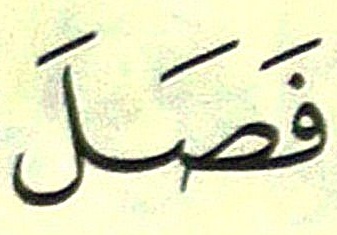 فَصَلَ